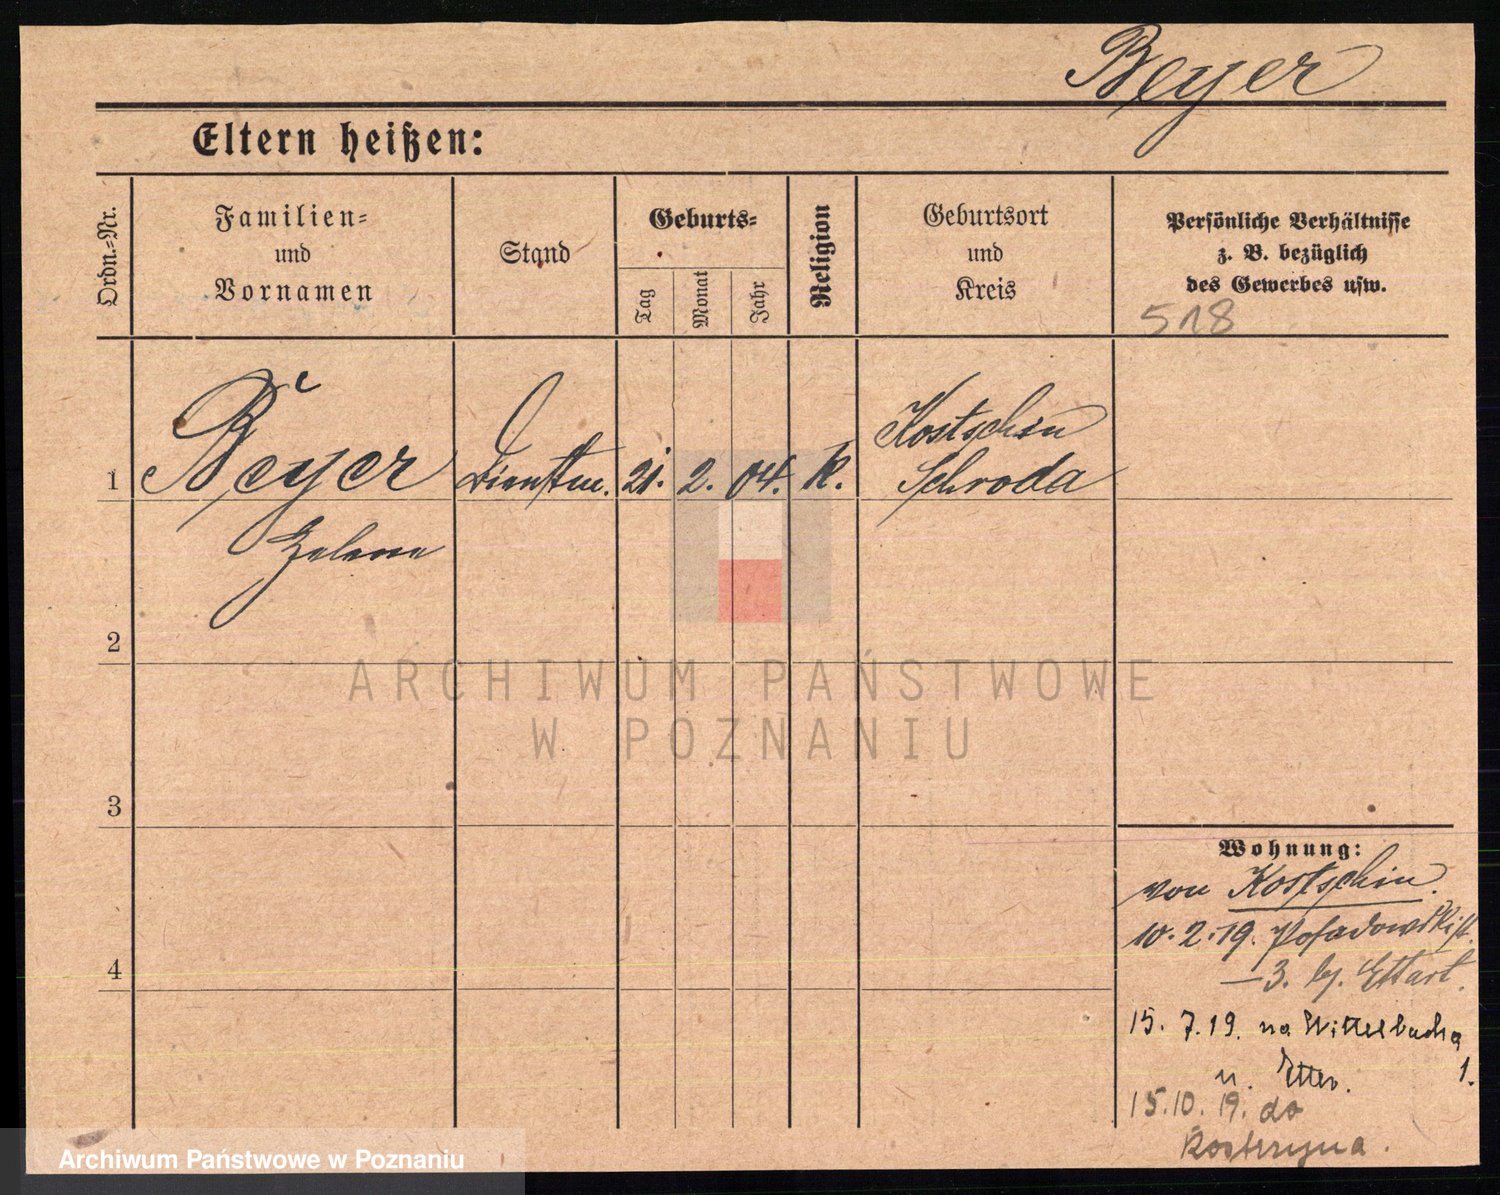 Beyer
Eltern heißen:
Ordn.=Nr.
Familien=
und
Vornamen
Stand
Geburts=
Tag
Monat
Jahr
Religion
Geburtsort
und
Kreis
Persönliche Verhältnisse
z. B. bezüglich
des Gewerbes usw.
518
1
Beyer
Dienstm. 21. 2. 04. k.
Kostschin
Schroda
2
3
4
Wohnung:
von Kostschin.
10.2.19. Posadowskist.
—3. bj.
15.7.19. na Wittelbacha
1.
u.
15.10.19. do
Kostrzyna.
ARCHIWUM PAŃSTWOWE
W POZNANIU
Archiwum Państwowe w Poznaniu